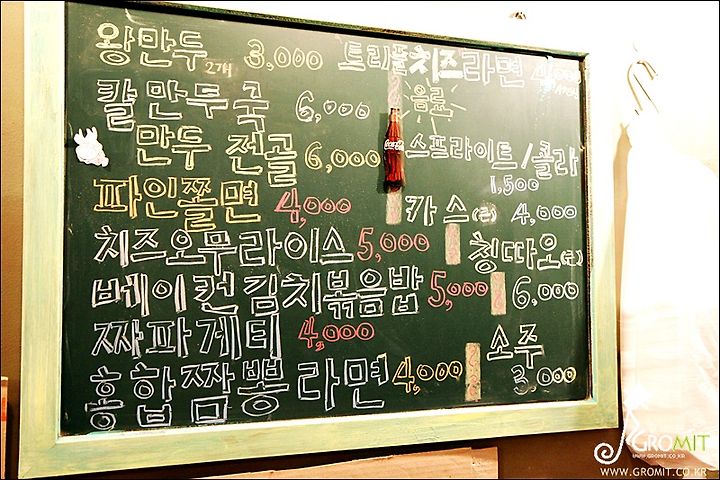 왕만두 2개 3,000
칼만두국 6,000
만두전골 6,000
파인쫄면 4,000
치즈오무라이스 5,000
베이컨김치볶음밥 5,000
짜파게티 4,000
홍합짬뽕라면 4,000
트리플치즈라면
음료
Coca-Cola
스프라이트/콜라
1,500
카스(병) 4,000
칭따오(병)
6,000
소주
3,000
GROMIT
WWW.GROMIT.CO.KR
WWW.GROMIT.CO.KR